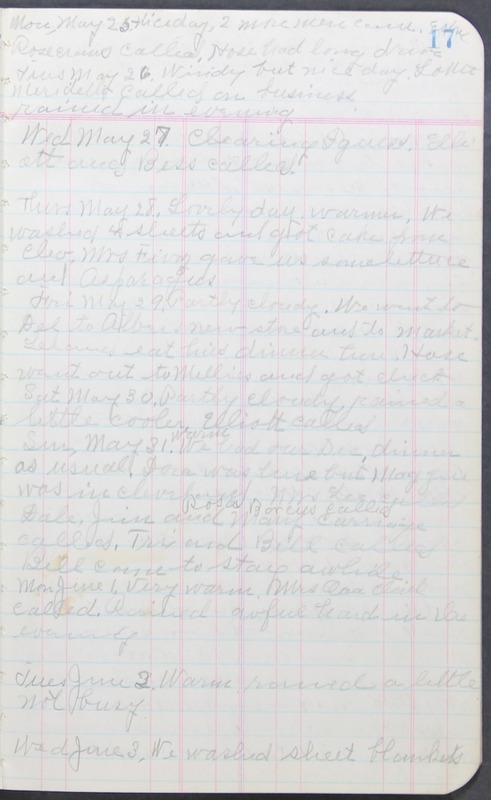 17
Mon, May 25, nice day, 2 more men came.
Rosecrans called, Rose had long drive
Tues May 26. Windy but nice day. Lottie
Meridette called on business
rained in evening
Wed May 27. Clearing Elli-
ott and Bess called.
Thurs May 28. Lovely day, warmer, We
washed 4 sheets and got cake from
Cleo. Mrs gave us some lettuce
and Asparagus
Fri May 29. Partly cloudy. We went to
Del. to new store and to market.
eat his dinner here. Rose
went out to Millies and got check
Sat May 30. Partly cloudy, rained a
little cooler, Elliott called
Sun, May 31. warm We had our Dec, dinner
as usual. was here but
was in Mrs
Rosa called
Dale, Jim and Mary
called. and Bill called
Bill came to stay awhile
Mon June 1. Very warm. Mrs
called. Rained awful hard in the
evening
Tues June 2. Warm rained a little
not busy
Wed June 3, We washed sheet blankets